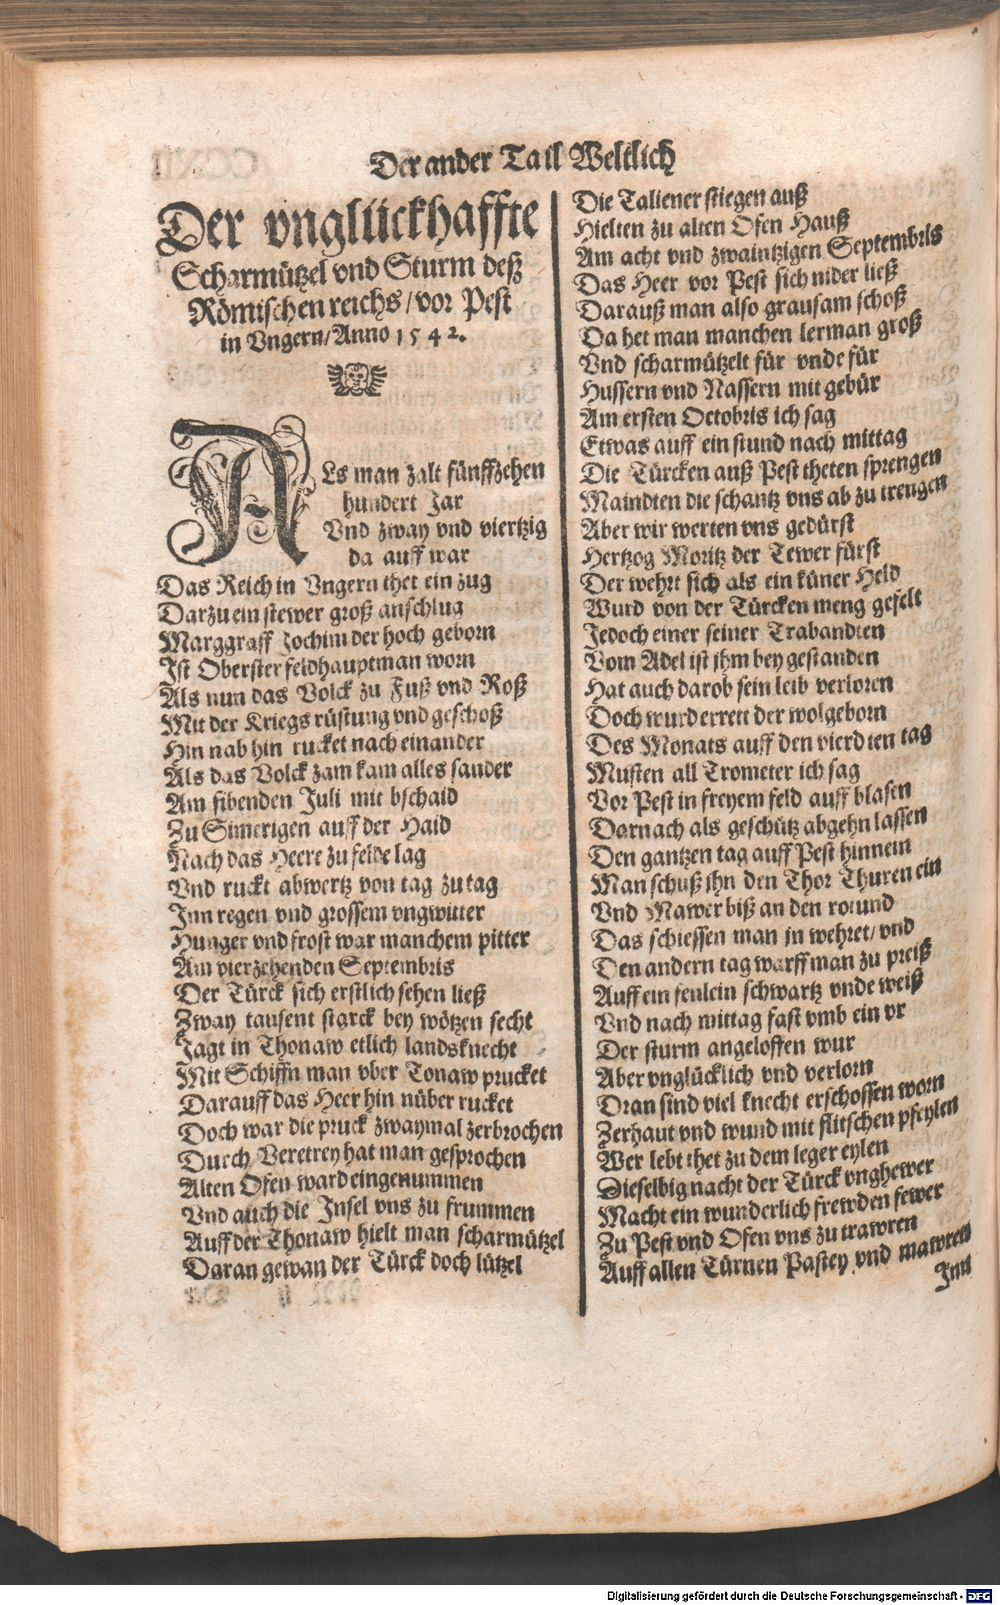 Der ander Tail Weltlich
Der vnglückhaffte
Scharmützel vnd Sturm deß
Römischen reichs/vor Pest
in Vngern/Anno 1542.
ALs man zalt fünffzehen
hundert Jar
Vnd zway vnd viertzig
da auff war
Das Reich in Vngern thet ein zug
Darzu ein stewer groß anschlug
Marggraff Jochim der hoch geborn
Ist Oberster feldhauptman worn
Als nun das Volck zu Fuß vnd Roß
Mit der Kriegs rüstung vnd geschoß
Hin nab hin rucket nach einander
Als das Volck zam kam alles sander
Am sibenden Juli mit bschaid
Zu Simerigen auff der Haid
Nach das Heere zu felde lag
Vnd ruckt abwertz von tag zu tag
Inn regen vnd grossem vngwitter
Hunger vnd frost war manchem pitter
Am vierzehenden Septembris
Der Türck sich erstlich sehen ließ
Zway tausent starck bey wötzen secht
Jagt in Thonaw etlich landsknecht
Mit Schiffn man vber Tonaw prucket
Darauff das Heer hin nüber rucket
Doch war die pruck zwaymal zerbrochen
Durch Veretrey hat man gesprochen
Alten Ofen ward eingenummen
Vnd auch die Insel vns zu frummen
Auff der Thonaw hielt man scharmützel
Daran gewan der Türck doch lützel
Die Taliener stiegen auß
Hielten zu alten Ofen Hauß
Am acht vnd zwaintzigen Septembris
Das Heer vor Pest sich nider ließ
Darauß man also grausam schoß
Da het man manchen lerman groß
Vnd scharmützelt für vnde für
Hussern vnd Nassern mit gebür
Am ersten Octobris ich sag
Etwas auff ein stund nach mittag
Die Türcken auß Pest theten sprengen
Maindten die schantz vns ab zu trengen
Aber wir werten vns gedürst
Hertzog Moritz der Tewer fürst
Der wehrt sich als ein küner Held
Wurd von der Türcken meng gefelt
Jedoch einer seiner Trabandten
Vom Adel ist jhm bey gestanden
Hat auch darob sein leib verloren
Doch wurd errett der wolgeborn
Des Monats auff den vierdten tag
Musten all Trometer ich sag
Vor Pest in freyem feld auff blasen
Darnach als geschütz abgehn lassen
Den gantzen tag auff Pest hinnein
Man schuß ihn den Thor Thuren ein
Vnd Mawer biß an den rotund
Das schiessen man in wehret/vnd
Den andern tag warff man zu preiß
Auff ein fenlein schwartz vnde weiß
Vnd nach mittag fast vmb ein vr
Der sturm angeloffen wur
Aber vnglücklich vnd verlorn
Dran sind viel knecht erschossen worn
Zerhaut vnd wund mit flitschen pfeylen
Wer lebt thet zu dem leger eylen
Dieselbig nacht der Türck vnghewer
Macht ein wunderlich frewden fewer
Zu Pest vnd Ofen vns zu trawren
Auff allen Türnen Pastey vnd mawren
Inn
Digitalisierung gefördert durch die Deutsche Forschungsgemeinschaft - DFG